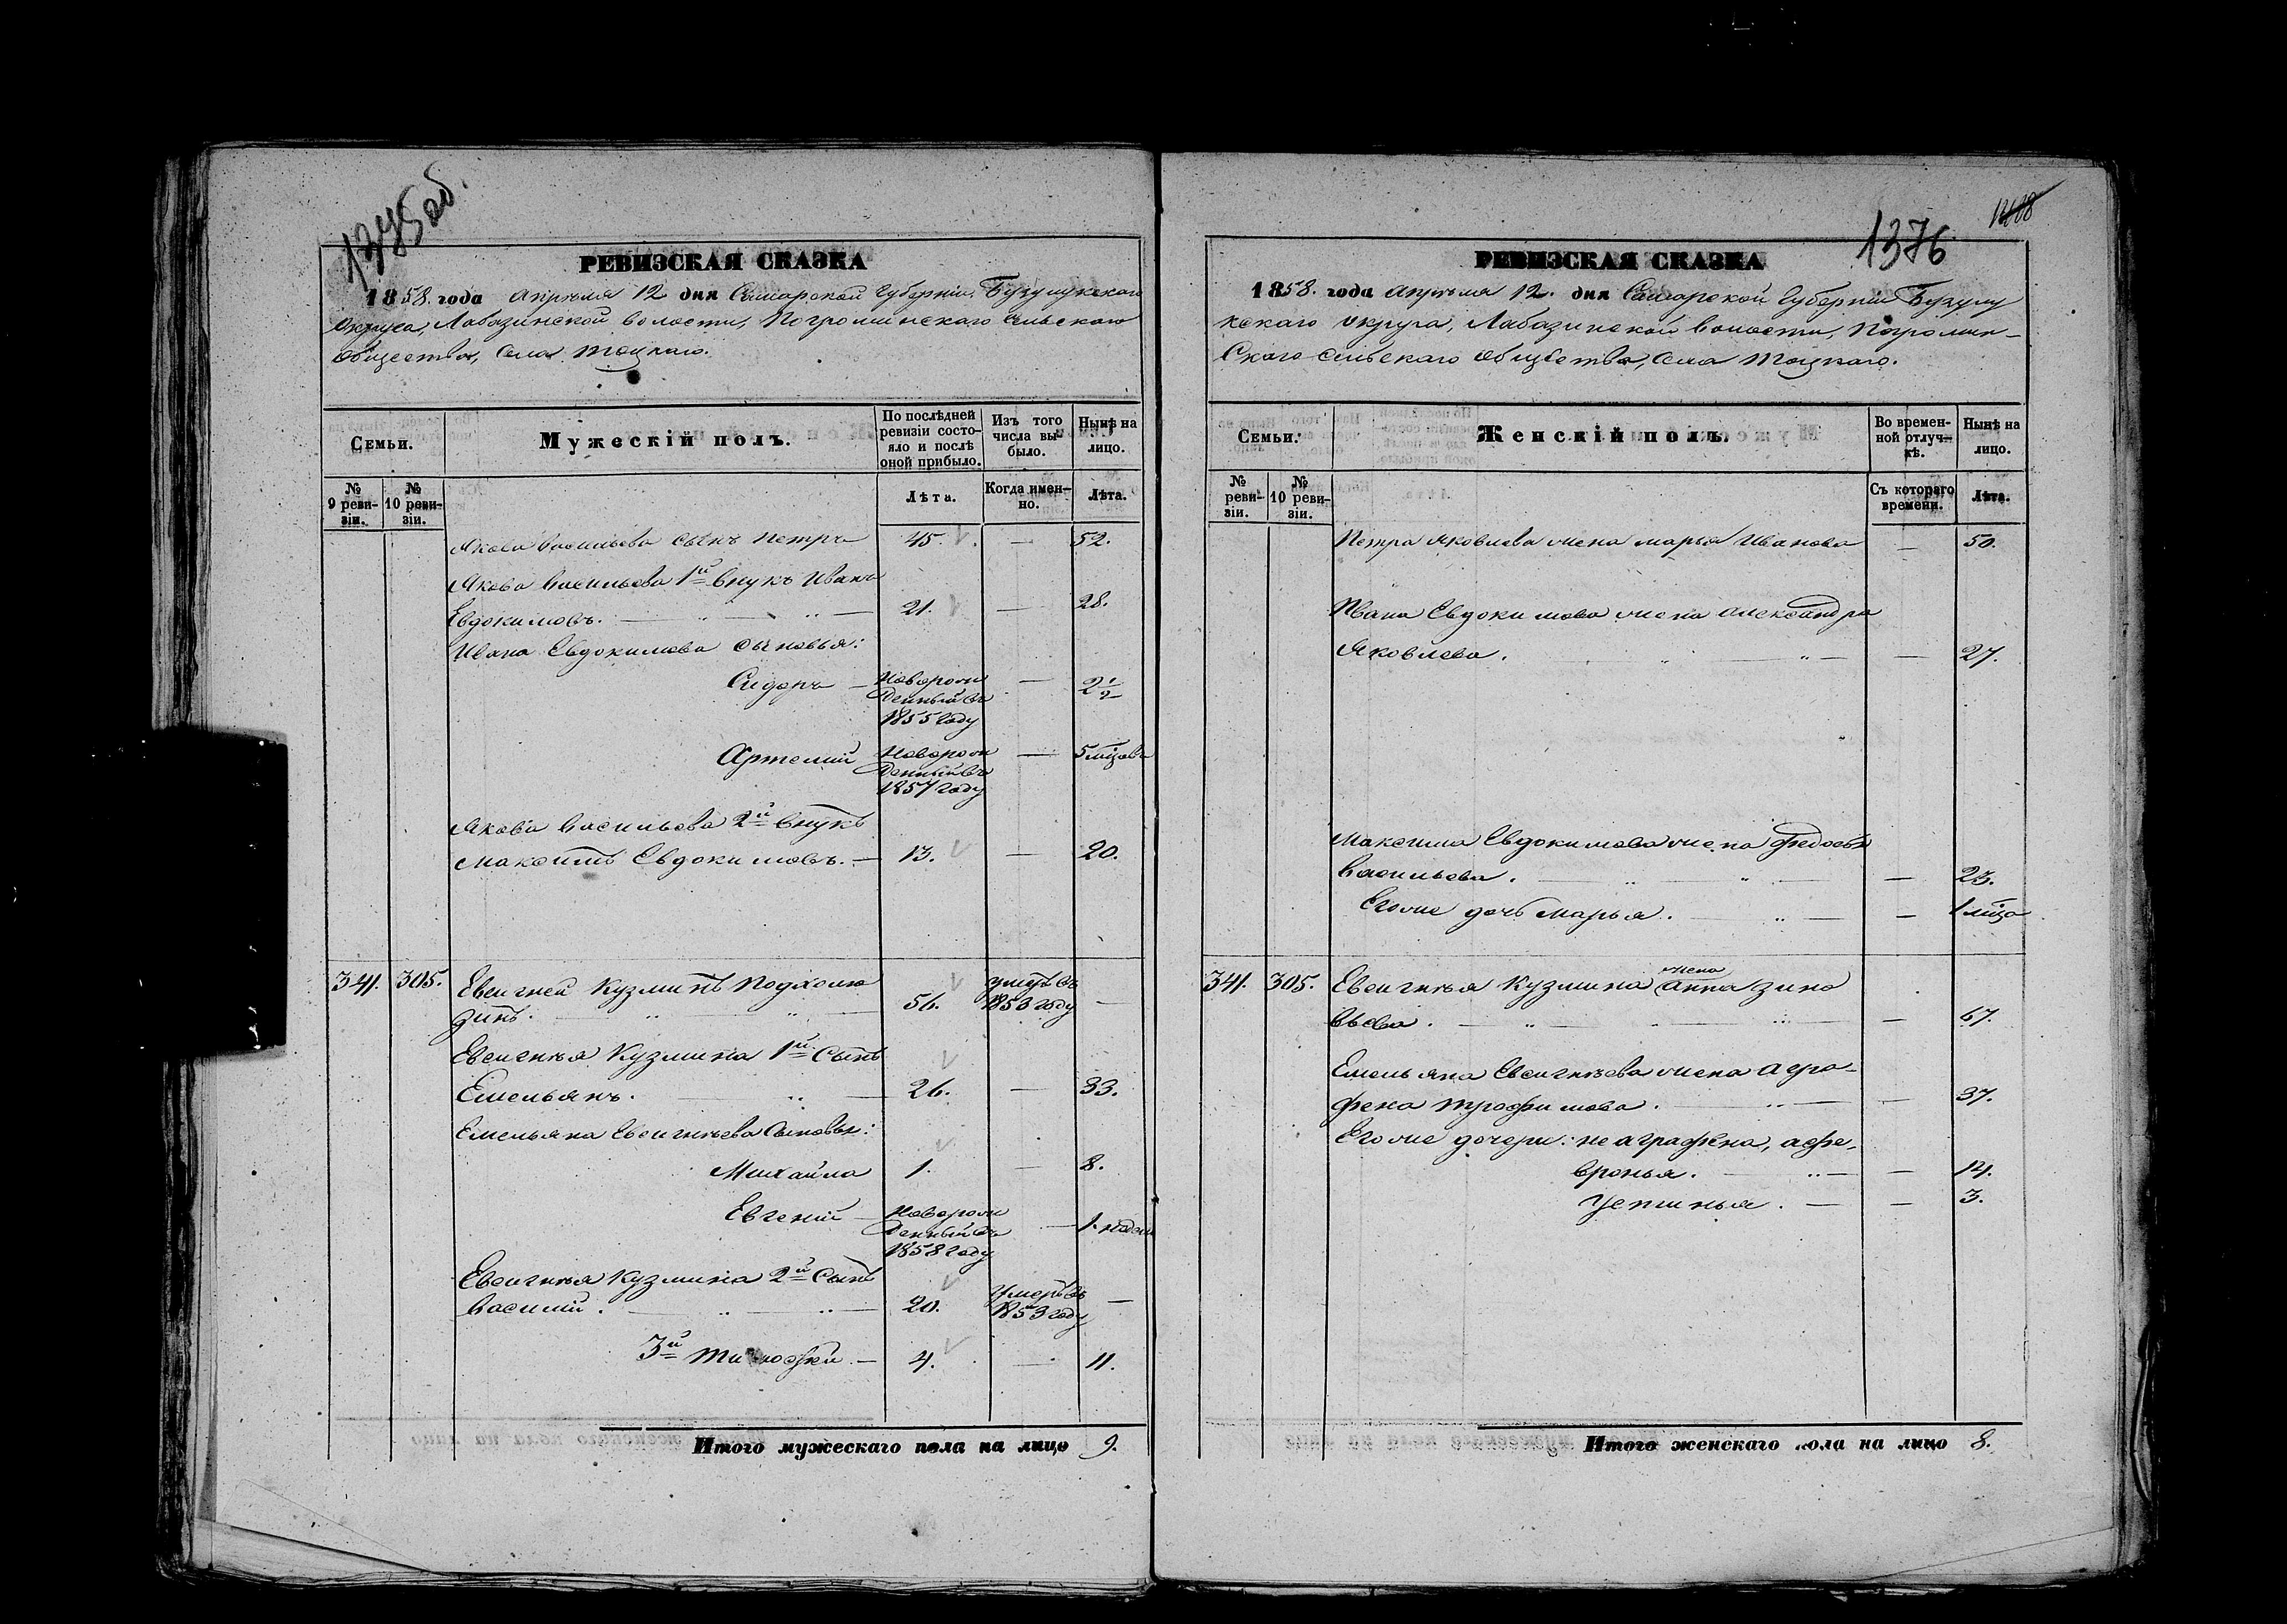 1375об.
РЕВИЗСКАЯ СКАЗКА
1858. года Апрѣля 12 дня Самарской Губерніи, Бузулукскаго
Округа, Лабазинской волости, Погроминскаго сельскаго
Общества, Села Тоцкаго.
Семьи.
Мужескій полъ.
По послѣдней ревизіи состояло и послѣ оной прибыло.
Изъ того числа выбыло.
Нынѣ на лицо.
№ 9 ревизіи.
№ 10 ревизіи.
Лѣта.
Когда именно.
Лѣта.
Якова Васильева сынъ Петръ 45. — 52.
Якова Васильева 1й внукъ Иванъ
Евдокимовъ. 21. — 28.
Ивана Евдокимова сыновья:
Сидоръ — Новорожденный въ 1855 году — 2 1/2
Артемий Новорожденный въ 1857 году — 5 мцовъ
Якова Васильева 2й внукъ
Максимъ Евдокимовъ. — 13. — 20.
341. 305. Евсигней Кузминъ Подхолю
зинъ. 56. умеръ въ 1853 году —
Евсигнѣя Кузмина 1й сынъ
Емельянъ. 26. — 33.
Емельяна Евсигнѣева сыновья:
Михайла 1. — 8.
Евгений — Новорожденный въ 1858 году — 1. недели
Евсигнѣя Кузмина 2й сынъ
Василий. 20. Умеръ въ 1853 году —
3й Тимофей. — 4. — 11.
Итого мужескаго пола на лицо 9.
1376
РЕВИЗСКАЯ СКАЗКА
1858. года Апрѣля 12. дня Самарской Губерніи Бузулу
кскаго округа, Лабазинской волости, Погромин-
Скаго сельскаго общества, Села Тоцкаго.
Семьи.
Женскій полъ.
Во временной отлучкѣ.
Нынѣ на лицо.
№ ревизіи.
№ 10 ревизіи.
Съ котораго времени.
Лѣта.
Петра Яковлева жена Марья Иванова — 50.
Ивана Евдокимова жена Александра
Яковлева. — 27.
Максима Евдокимова жена Федосья
Васильева. — 23.
Его же дочь Марья. — 1 мца
341. 305. Евсигнѣя Кузмина жена Анна Зино
вьева. — 67.
Емельяна Евсигнѣева жена Агра-
фена Трофимова. — 37.
Его же дочери: не Аграфена, а Фе-
вронья. — 14.
Устинья. — — 3.
Итого женскаго пола на лицо 8.